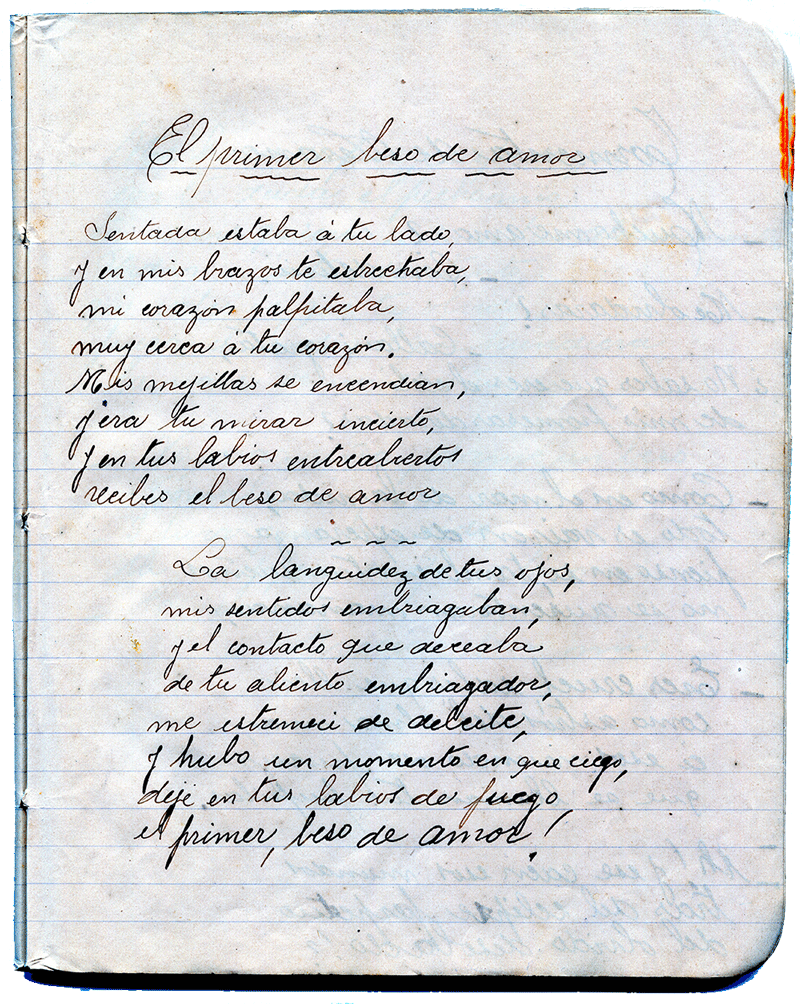 El primer beso de amor
Sentada estaba á tu lado,
y en mis brazos te estrechaba,
mi corazón palpitaba,
muy cerca á tu corazón.
Mis mejillas se encendian,
y era tu mirar incierto,
y en tus labios entreabiertos
recibes el beso de amor
~ ~ ~
La languidez de tus ojos,
mis sentidos embriagaban,
y el contacto que deceaba
de tu aliento embriagador,
me estremeci de deleite,
y hubo un momento en que ciego,
deje en tus labios de fuego,
el primer, beso de amor!